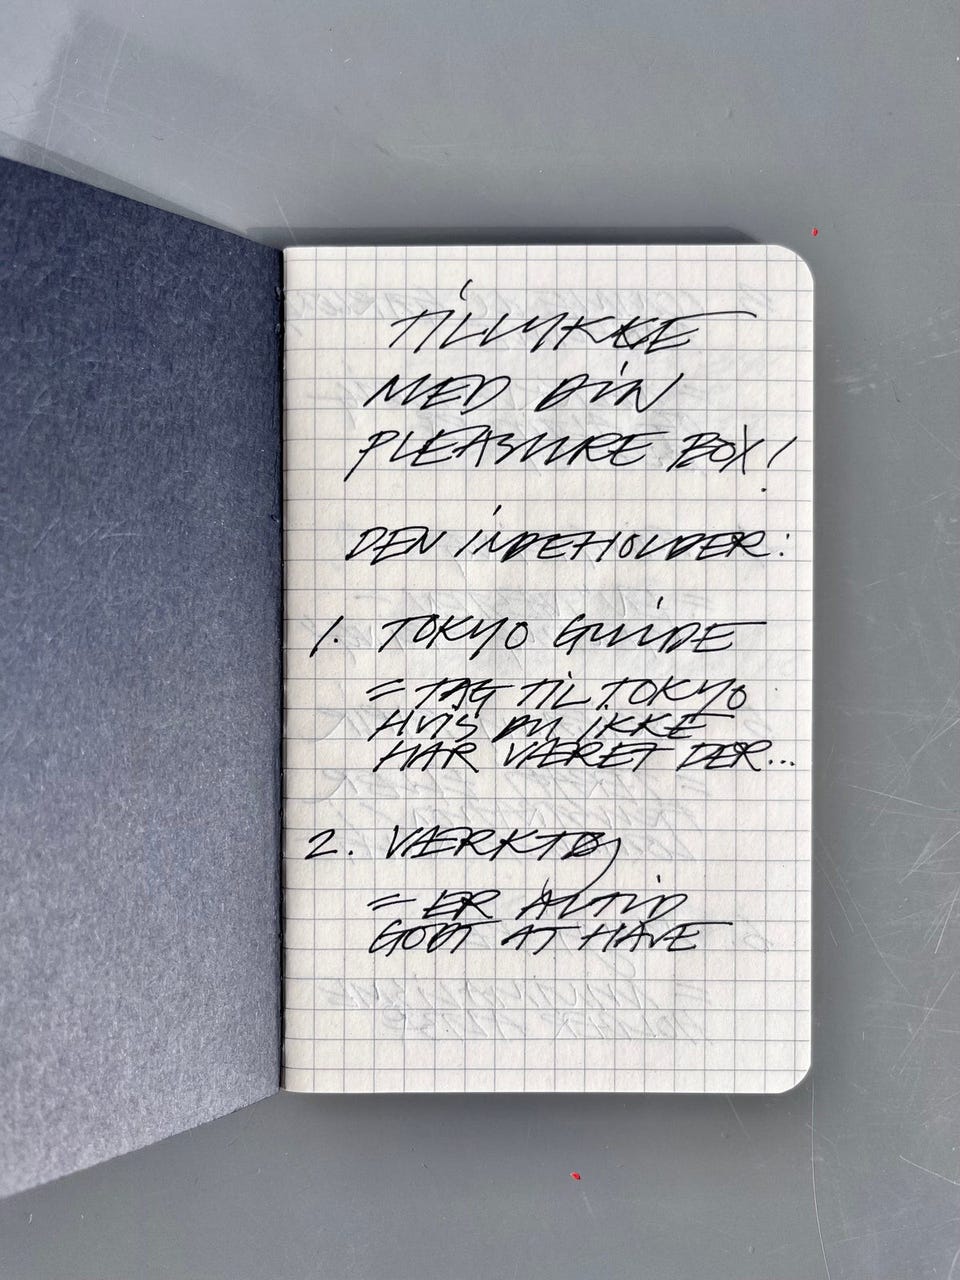 TILLYKKE
MED DIN
PLEASURE BOX!
DEN INDEHOLDER:
1. TOKYO GUIDE
= TAG TIL TOKYO
HVIS DU IKKE
HAR VÆRET DER...
2. VÆRKTØJ
= ER ALTID
GODT AT HAVE